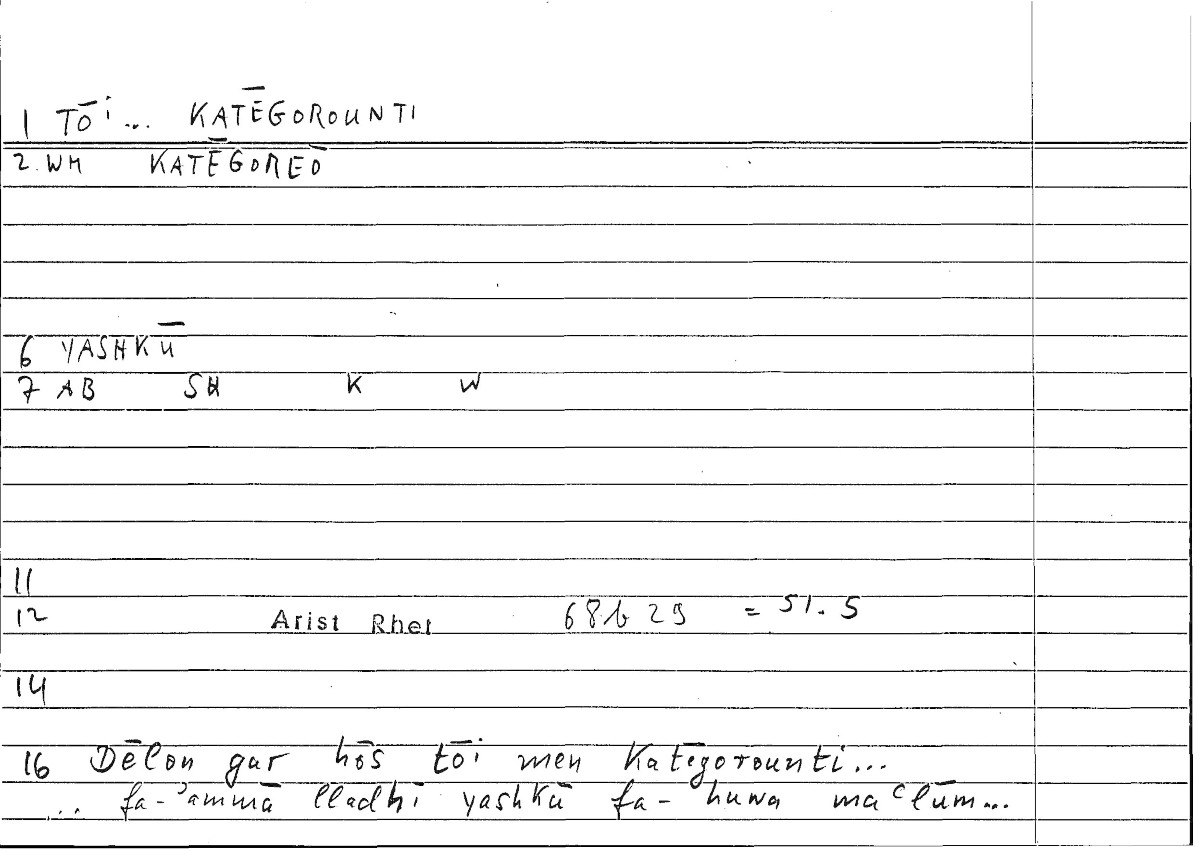 1 TŌi... KATĒGOROUNTI
2. WM KATĒGOREŌ
6 YASHKŪ
7 AB SH K W
11
12 Arist Rhet 68b 29 = 51.5
14
16 Dēlon gar hōs tōi men Katēgorounti...
... fa-ʾammā lladhī yashkū fa- huwa maʿlūm...